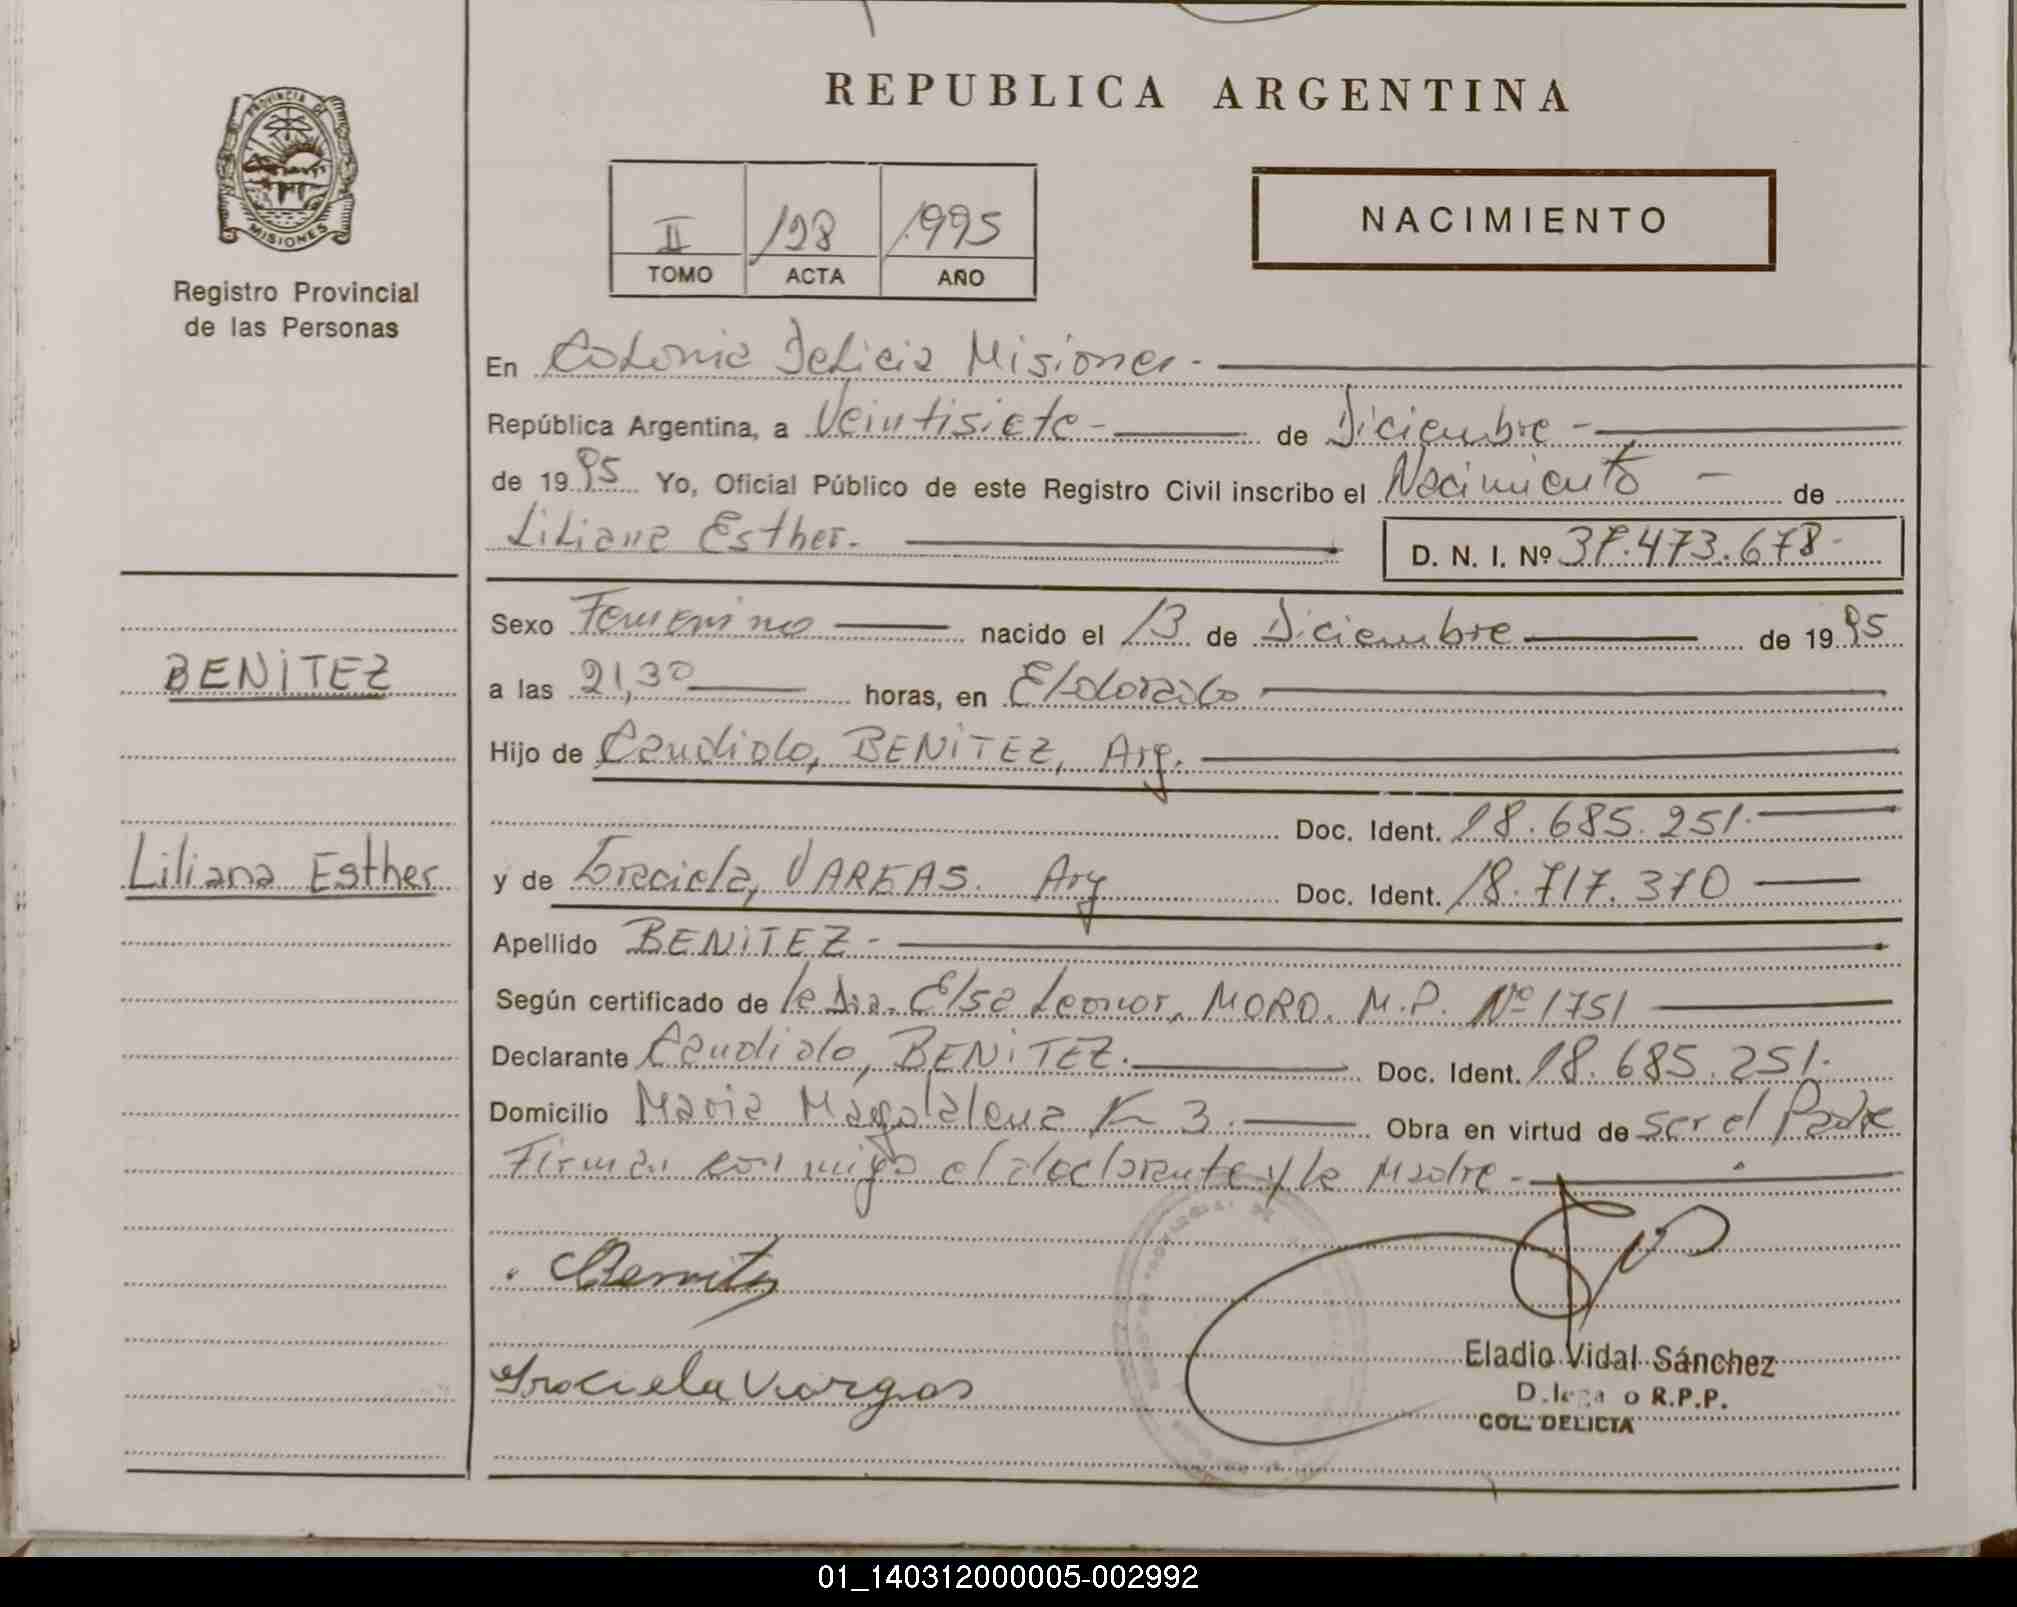 PROVINCIA DE
MISIONES
Registro Provincial
de las Personas
REPUBLICA ARGENTINA
II 198 1995
TOMO ACTA AÑO
NACIMIENTO
En Colonia Delicia Misiones.-
República Argentina, a Veintisiete - de Diciembre -
de 1995 Yo, Oficial Público de este Registro Civil inscribo el Nacimiento - de
Liliana Esther.
D. N. I. Nº 37.473.678-
Sexo Femenino nacido el 13 de Diciembre de 1995
BENITEZ
a las 21,30 horas, en Eldorado
Hijo de Candido, BENITEZ, Arg.
Doc. Ident. 18.685.251.
Liliana Esther
y de Graciela, VARGAS. Arg Doc. Ident. 18.717.370
Apellido BENITEZ -
Según certificado de la Dra. Elsa Leonor, MORO. M.P. Nº 1751
Declarante Candido, BENITEZ. Doc. Ident. 18.685.251.
Domicilio Maria Magdalena K 3. Obra en virtud de ser el Padre
Firman conmigo el declarante y la Madre -
CBenitez
Graciela Vargas
Eladio Vidal Sánchez
R.P.P.
COL. DELICIA
01_140312000005-002992